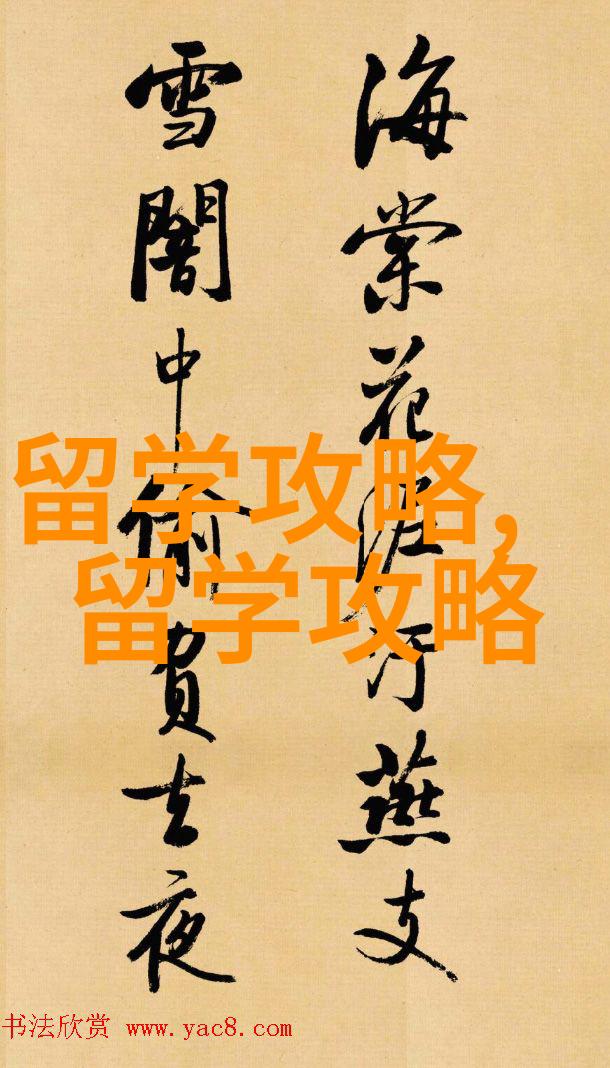 海棠花泥汙燕支
雪闇中偷負去夜
留学攻略,
留学攻略
书法欣赏 www.yac8.com